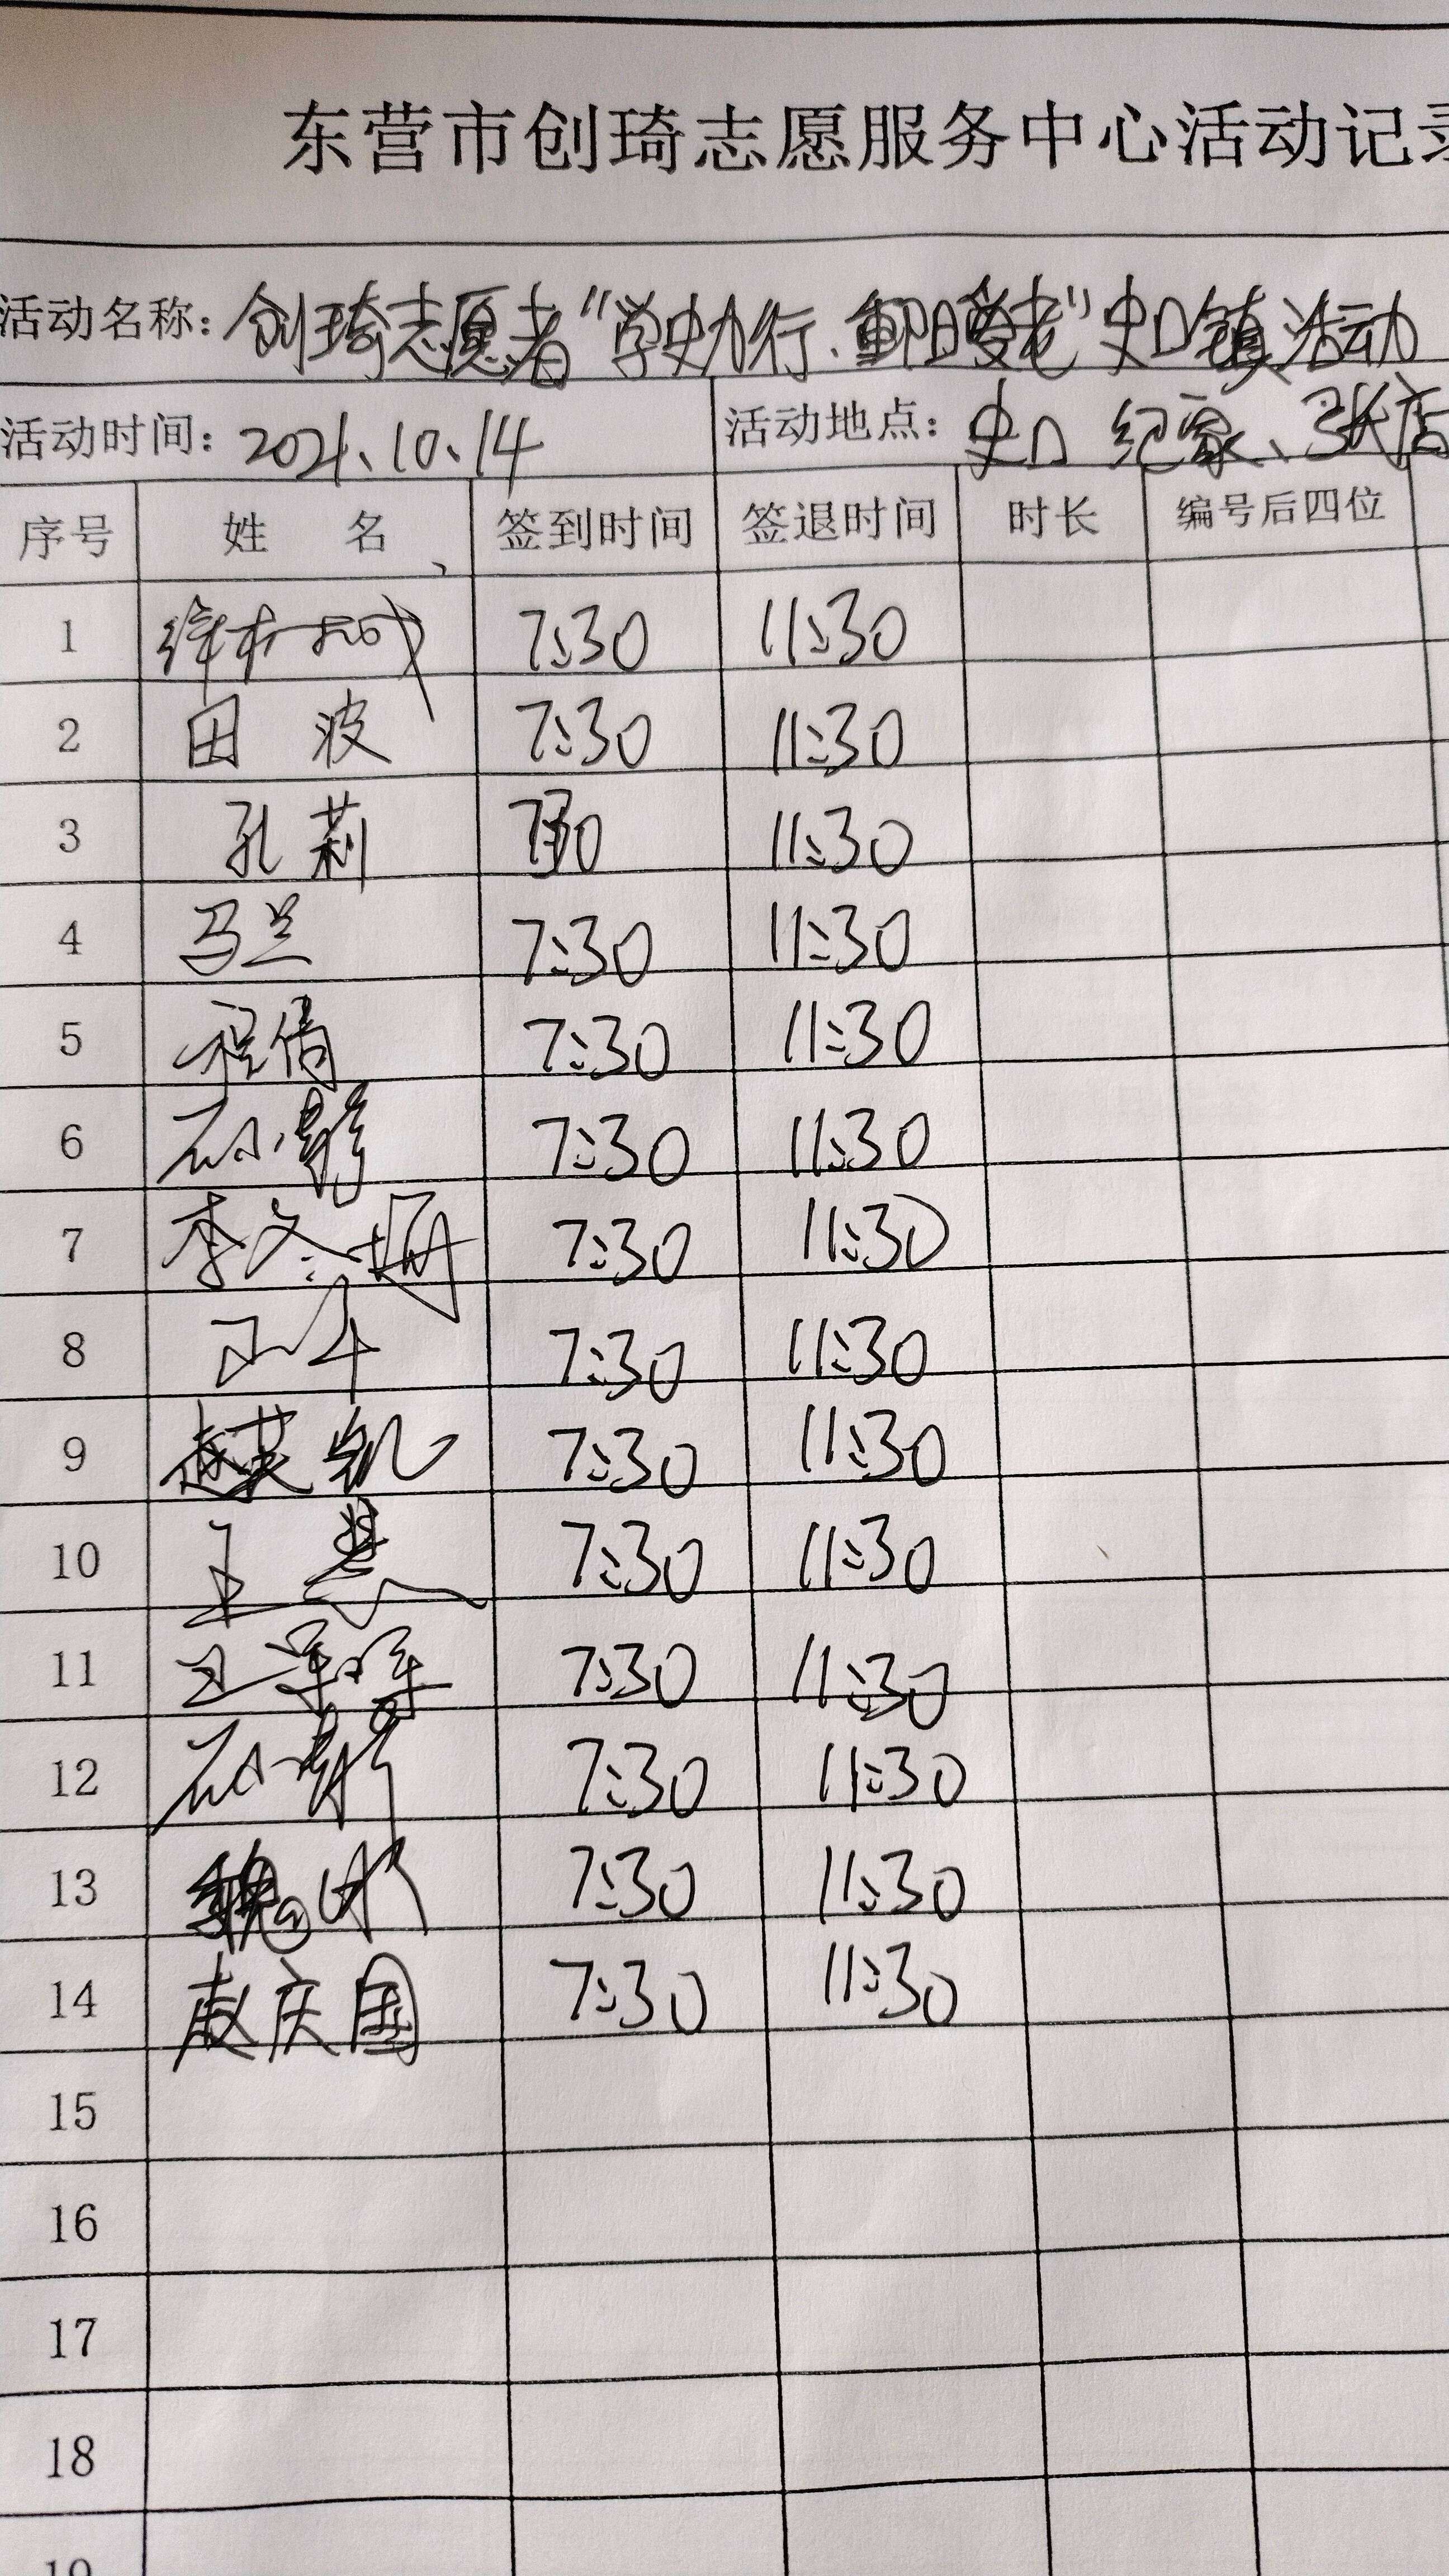 东营市创琦志愿服务中心活动记录
活动名称：创琦志愿者“学史力行、重阳爱老”史口镇活动
活动时间：2021.10.14 活动地点：史口 纪家、张店
序号 姓 名 签到时间 签退时间 时长 编号后四位
1 7:30 11:30
2 田 波 7:30 11:30
3 孔莉 7:30 11:30
4 马兰 7:30 11:30
5 程倩 7:30 11:30
6 7:30 11:30
7 李 7:30 11:30
8 7:30 11:30
9 赵英凯 7:30 11:30
10 王 7:30 11:30
11 王 7:30 11:30
12 7:30 11:30
13 魏 7:30 11:30
14 赵庆国 7:30 11:30
15
16
17
18
19